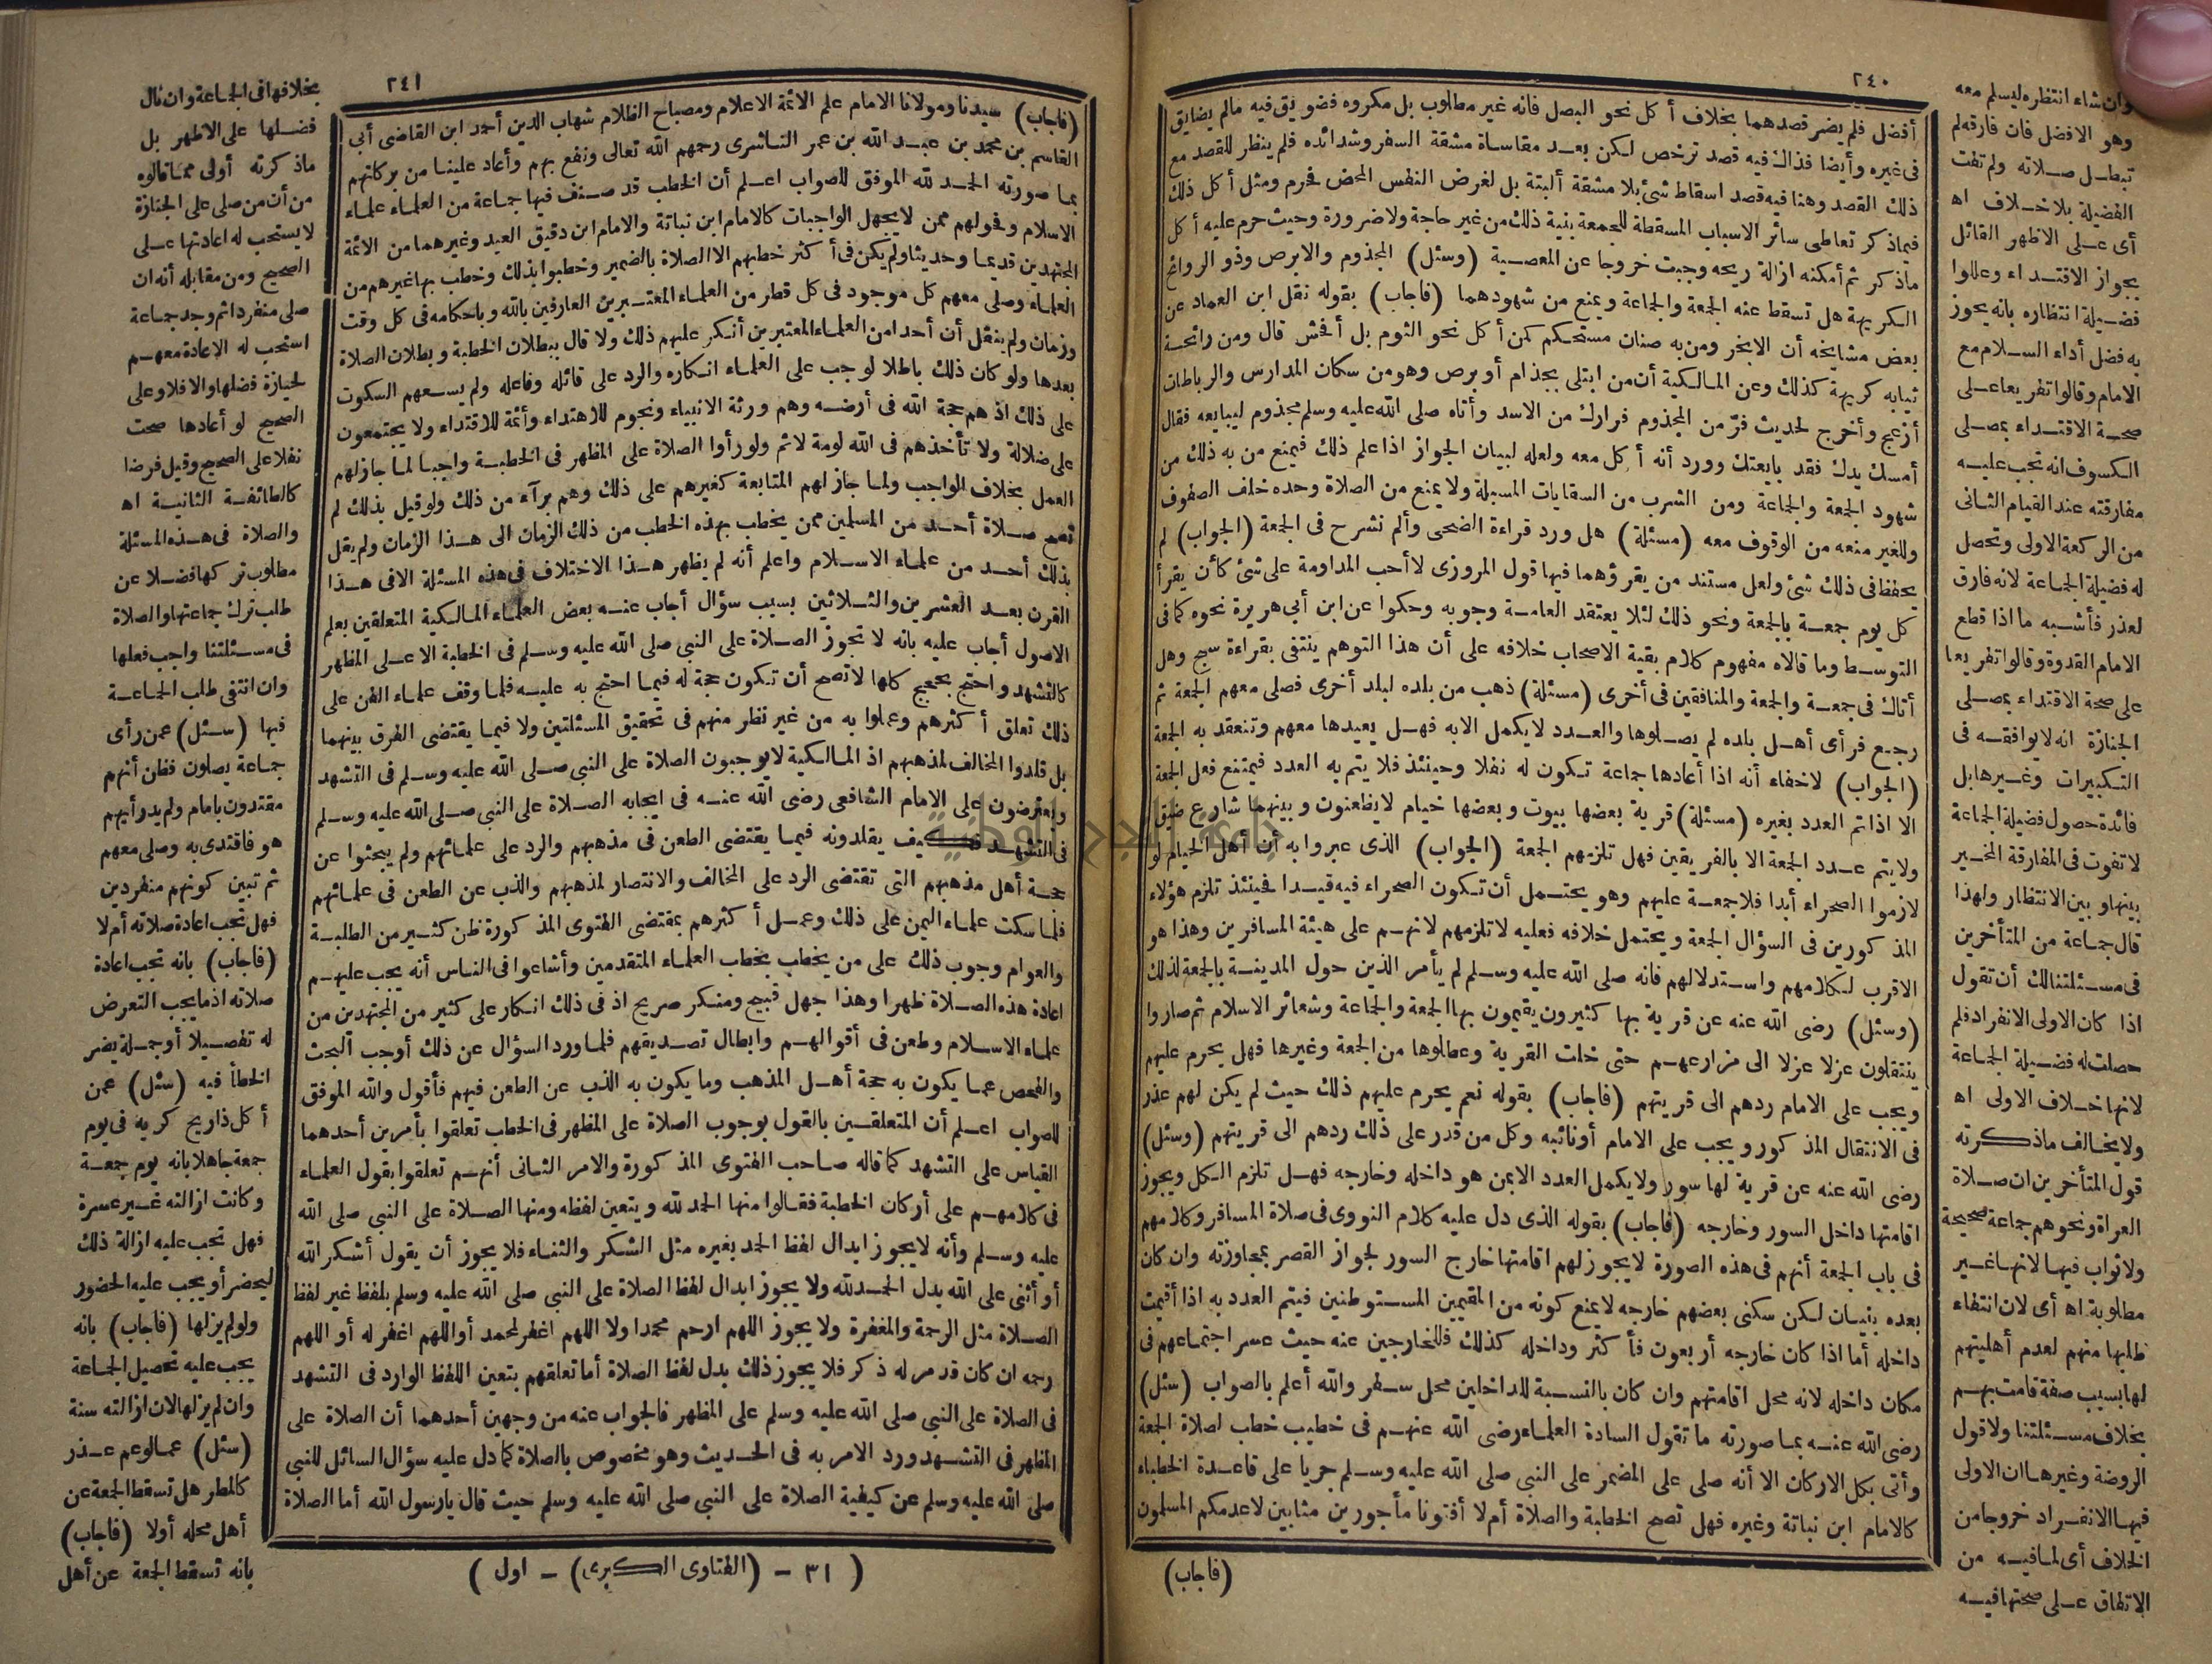 ٢٤٠
أفضل فلم يضر قصدهما بخلاف أكل نحو البصل فانه غير مطلوب بل مكروه فضويق فيه مالم يضايق
فى غيره وأيضا فذاك فيه قصد ترخص لكن بعد مقاساة مشقة السفر وشدائده فلم ينظر للقصد مع
ذلك القصد وهنا فيه قصد اسقاط شئ بلا مشقة ألبتة بل لغرض النفس المحض فحرم ومثل أكل ذلك
فيماذكر تعاطى سائر الاسباب المسقطة للجمعة بنية ذلك من غير حاجة ولاضرورة وحيث حرم عليه أكل
ماذكر ثم أمكنه ازالة ريحه وجبت خروجا عن المعصية (وسئل) المجذوم والابرص وذو الروائح
الكريهة هل تسقط عنه الجمعة والجماعة ويمنع من شهودهما (فاجاب) بقوله نقل ابن العماد عن
بعض مشايخه أن الابخر ومن به صنان مستحكم كمن أكل نحو الثوم بل أفحش قال ومن رائحة
ثيابه كريهة كذلك وعن المالكية أن من ابتلى بجذام أو برص وهو من سكان المدارس والرباطات
أزعج وأخرج لحديث فرّ من المجذوم فرارك من الاسد وأتاه صلى الله عليه وسلم مجذوم ليبايعه فقال
أمسك يدك فقد بايعتك وورد أنه أكل معه ولعله لبيان الجواز اذا علم ذلك فيمنع من به ذلك من
شهود الجمعة والجماعة ومن الشرب من السقايات المسبلة ولا يمنع من الصلاة وحده خلف الصفوف
وللغير منعه من الوقوف معه (مسئلة) هل ورد قراءة الضحى وألم نشرح فى الجمعة (الجواب) لم
يحفظ فى ذلك شئ ولعل مستند من يقرؤهما فيها قول المروزى لا أحب المداومة على شئ كأن يقرأ
كل يوم جمعة بالجمعة ونحو ذلك لئلا يعتقد العامة وجوبه وحكوا عن ابن أبى هريرة نحوه كما فى
التوسط وما قالاه مفهوم كلام بقية الاصحاب خلافه على أن هذا التوهم ينتفى بقراءة سبح وهل
أتاك فى جمعة والجمعة والمنافقين فى أخرى (مسئلة) ذهب من بلده لبلد أخرى فصلى معهم الجمعة ثم
رجع فرأى أهل بلده لم يصلوها والعدد لايكمل الابه فهل يعيدها معهم وتنعقد به الجمعة
(الجواب) لاخفاء أنه اذا أعادها جماعة تكون له نفلا وحينئذ فلا يتم به العدد فيمتنع فعل الجمعة
الا اذا تم العدد بغيره (مسئلة) قرية بعضها بيوت وبعضها خيام لايظعنون وبينهما شارع ضيق
ولايتم عدد الجمعة الا بالفريقين فهل تلزمهم الجمعة (الجواب) الذى عبروا به أن أهل الخيام لو
لازموا الصحراء أبدا فلا جمعة عليهم وهو يحتمل أن تكون الصحراء فيه قيدا فحينئذ تلزم هؤلاء
المذكورين فى السؤال الجمعة ويحتمل خلافه فعليه لا تلزمهم لانهم على هيئة المسافرين وهذا هو
الاقرب لكلامهم واستدلالهم فانه صلى الله عليه وسلم لم يأمر الذين حول المدينة بالجمعة لذلك
(وسئل) رضى الله عنه عن قرية بها كثيرون يقيمون بها الجمعة والجماعة وشعائر الاسلام ثم صاروا
ينتقلون عزلا عزلا الى مزارعهم حتى خلت القرية وعطلوها من الجمعة وغيرها فهل يحرم عليهم
ويجب على الامام ردهم الى قريتهم (فاجاب) بقوله نعم يحرم عليهم ذلك حيث لم يكن لهم عذر
فى الانتقال المذكور ويجب على الامام أونائبه وكل من قدر على ذلك ردهم الى قريتهم (وسئل)
رضى الله عنه عن قرية لها سور ولايكمل العدد الابمن هو داخله وخارجه فهل تلزم الكل ويجوز
اقامتها داخل السور وخارجه (فاجاب) بقوله الذى دل عليه كلام النووى فى صلاة المسافر وكلامهم
فى باب الجمعة أنهم فى هذه الصورة لايجوز لهم اقامتها خارج السور لجواز القصر بمجاوزته وان كان
بعده بنيان لكن سكنى بعضهم خارجه لايمنع كونه من المقيمين المستوطنين فيتم العدد به اذا أقيمت
داخله أما اذا كان خارجه أربعون فأكثر وداخله كذلك فللخارجين عنه حيث عسر اجتماعهم فى
مكان داخله لانه محل اقامتهم وان كان بالنسبة للداخلين محل سفر والله أعلم بالصواب (سئل)
رضى الله عنه بما صورته ما تقول السادة العلماء رضى الله عنهم فى خطيب خطب لصلاة الجمعة
وأتى بكل الاركان الا أنه صلى على المضمر على النبى صلى الله عليه وسلم جريا على قاعدة الخطباء
كالامام ابن نباتة وغيره فهل تصح الخطبة والصلاة أم لا أفتونا مأجورين مثابين لاعدمكم المسلمون
(فاجاب)
وان شاء انتظره ليسلم معه
وهو الافضل فان فارقه لم
تبطل صلاته ولم تفت
الفضيلة بلا خلاف اه
أى على الاظهر القائل
بجواز الاقتداء وعللوا
فضيلة انتظاره بانه يحوز
به فضل أداء السلام مع
الامام وقالوا تفريعا على
صحة الاقتداء بمصلى
الكسوف انه تجب عليه
مفارقته عند القيام الثانى
من الركعة الاولى وتحصل
له فضيلة الجماعة لانه فارق
لعذر فأشبه ما اذا قطع
الامام القدوة وقالوا تفريعا
على صحة الاقتداء بمصلى
الجنازة انه لا يوافقه فى
التكبيرات وغيرها بل
فائدة حصول فضيلة الجماعة
لاتفوت فى المفارقة المخير
بينها وبين الانتظار ولهذا
قال جماعة من المتأخرين
فى مسئلتنا لك أن تقول
اذا كان الاولى الانفراد فلم
حصلت له فضيلة الجماعة
لانها خلاف الاولى اه
ولا يخالف ماذكرته
قول المتأخرين ان صلاة
العراة ونحوهم جماعة صحيحة
ولا ثواب فيها لانها غير
مطلوبة اه أى لان انتفاء
طلبها منهم لعدم أهليتهم
لها بسبب صفة قامت بهم
بخلاف مسئلتنا ولا قول
الروضة وغيرها ان الاولى
فيها الانفراد خروجا من
الخلاف أى لما فيه من
الاتفاق على صحتها فيه
٢٤١
(فاجاب) سيدنا ومولانا الامام علم الائمة الاعلام ومصباح الظلام شهاب الدين أحمد ابن القاضى أبى
القاسم بن محمد بن عبد الله بن عمر الناشرى رحمهم الله تعالى ونفع بهم وأعاد علينا من بركاتهم
بما صورته الحمد لله الموفق للصواب اعلم أن الخطب قد صنف فيها جماعة من العلماء علماء
الاسلام وفحولهم ممن لايجهل الواجبات كالامام ابن نباتة والامام ابن دقيق العيد وغيرهما من الائمة
المجتهدين قديما وحديثا ولم يكن فى أكثر خطبهم الا الصلاة بالضمير وخطبوا بذلك وخطب بها غيرهم من
العلماء وصلى معهم كل موجود فى كل قطر من العلماء المعتبرين العارفين بالله وباحكامه فى كل وقت
وزمان ولم ينقل أن أحدا من العلماء المعتبرين أنكر عليهم ذلك ولا قال ببطلان الخطبة وبطلان الصلاة
بعدها ولو كان ذلك باطلا لوجب على العلماء انكاره والرد على قائله وفاعله ولم يسعهم السكوت
على ذلك اذ هم حجة الله فى أرضه وهم ورثة الانبياء ونجوم للاهتداء وأئمة للاقتداء ولا يجتمعون
على ضلالة ولا تأخذهم فى الله لومة لائم ولو رأوا الصلاة على المظهر فى الخطبة واجبا لما جاز لهم
العمل بخلاف الواجب ولما جاز لهم المتابعة كغيرهم على ذلك وهم برآء من ذلك ولو قيل بذلك لم
تصح صلاة أحد من المسلمين ممن يخطب بهذه الخطب من ذلك الزمان الى هذا الزمان ولم يقل
بذلك أحد من علماء الاسلام واعلم أنه لم يظهر هذا الاختلاف فى هذه المسئلة الافى هذا
القرن بعد العشرين والثلاثين بسبب سؤال أجاب عنه بعض العلماء المالكية المتعلقين بعلم
الاصول أجاب عليه بانه لا تجوز الصلاة على النبى صلى الله عليه وسلم فى الخطبة الا على المظهر
كالتشهد واحتج بحجج كلها لا تصح أن تكون حجة له فيما احتج به عليه فلما وقف علماء الفن على
ذلك تعلق أكثرهم وعملوا به من غير نظر منهم فى تحقيق المسئلتين ولا فيما يقتضى الفرق بينهما
بل قلدوا المخالف لمذهبهم اذ المالكية لايوجبون الصلاة على النبى صلى الله عليه وسلم فى التشهد
ويعترضون على الامام الشافعى رضى الله عنه فى ايجابه الصلاة على النبى صلى الله عليه وسلم
فى التشهد فكيف يقلدونه فيما يقتضى الطعن فى مذهبهم والرد على علمائهم ولم يبحثوا عن
حجة أهل مذهبهم التى تقتضى الرد على المخالف والانتصار لمذهبهم والذب عن الطعن فى علمائهم
فلما سكت علماء اليمن على ذلك وعمل أكثرهم بمقتضى الفتوى المذكورة ظن كثير من الطلبة
والعوام وجوب ذلك على من يخطب بخطب العلماء المتقدمين وأشاعوا فى الناس أنه يجب عليهم
اعادة هذه الصلاة ظهرا وهذا جهل قبيح ومنكر صريح اذ فى ذلك انكار على كثير من المجتهدين من
علماء الاسلام وطعن فى أقوالهم وابطال تصديقهم فلما ورد السؤال عن ذلك أوجب البحث
والفحص عما يكون به حجة أهل المذهب وما يكون به الذب عن الطعن فيهم فأقول والله الموفق
للصواب اعلم أن المتعلقين بالقول بوجوب الصلاة على المظهر فى الخطب تعلقوا بأمرين أحدهما
القياس على التشهد كما قاله صاحب الفتوى المذكورة والامر الثانى أنهم تعلقوا بقول العلماء
فى كلامهم على أركان الخطبة فقالوا منها الحمد لله ويتعين لفظه ومنها الصلاة على النبى صلى الله
عليه وسلم وأنه لايجوز ابدال لفظ الحمد بغيره مثل الشكر والثناء فلا يجوز أن يقول أشكر الله
أو أثنى على الله بدل الحمد لله ولا يجوز ابدال لفظ الصلاة على النبى صلى الله عليه وسلم بلفظ غير لفظ
الصلاة مثل الرحمة والمغفرة ولا يجوز اللهم ارحم محمدا ولا اللهم اغفر لمحمد أو اللهم اغفر له أو اللهم
رحمه ان كان قدمر له ذكر فلا يجوز ذلك بدل لفظ الصلاة أما تعلقهم بتعين اللفظ الوارد فى التشهد
فى الصلاة على النبى صلى الله عليه وسلم على المظهر فالجواب عنه من وجهين أحدهما أن الصلاة على
المظهر فى التشهد ورد الامر به فى الحديث وهو مخصوص بالصلاة كما دل عليه سؤال السائل للنبى
صلى الله عليه وسلم عن كيفية الصلاة على النبى صلى الله عليه وسلم حيث قال يا رسول الله أما الصلاة
( ٣١ - (الفتاوى الكبرى) - اول )
بخلافها فى الجماعة وان نال
فضلها على الاظهر بل
ماذكرته أولى مما قالوه
من أن من صلى على الجنازة
لا يستحب له اعادتها على
الصحيح ومن مقابله أنه ان
صلى منفردا ثم وجد جماعة
استحب له الاعادة معهم
لحيازة فضلها والا فلا وعلى
الصحيح لو أعادها صحت
نفلا على الصحيح وقيل فرضا
كالطائفة الثانية اه
والصلاة فى هذه المسئلة
مطلوب تركها فضلا عن
طلب ترك جماعتها والصلاة
فى مسئلتنا واجب فعلها
وان انتفى طلب الجماعة
فيها (سئل) عمن رأى
جماعة يصلون فظن أنهم
مقتدون بامام ولم يدر أيهم
هو فاقتدى به وصلى معهم
ثم تبين كونهم منفردين
فهل تجب اعادة صلاته أم لا
(فاجاب) بانه تجب اعادة
صلاته اذ ما يجب التعرض
له تفصيلا أو جملة يضر
الخطأ فيه (سئل) عمن
أكل ذا ريح كريه فى يوم
جمعة جاهلا بانه يوم جمعة
وكانت ازالته غير عسرة
فهل تجب عليه ازالة ذلك
ليحضر أو يجب عليه الحضور
ولو لم يزلها (فاجاب) بانه
يجب عليه تحصيل الجماعة
وان لم يزلها لان ازالته سنة
(سئل) عما لو عم عذر
كالمطر هل تسقط الجمعة عن
أهل محله أولا (فاجاب)
بانه تسقط الجمعة عن أهل